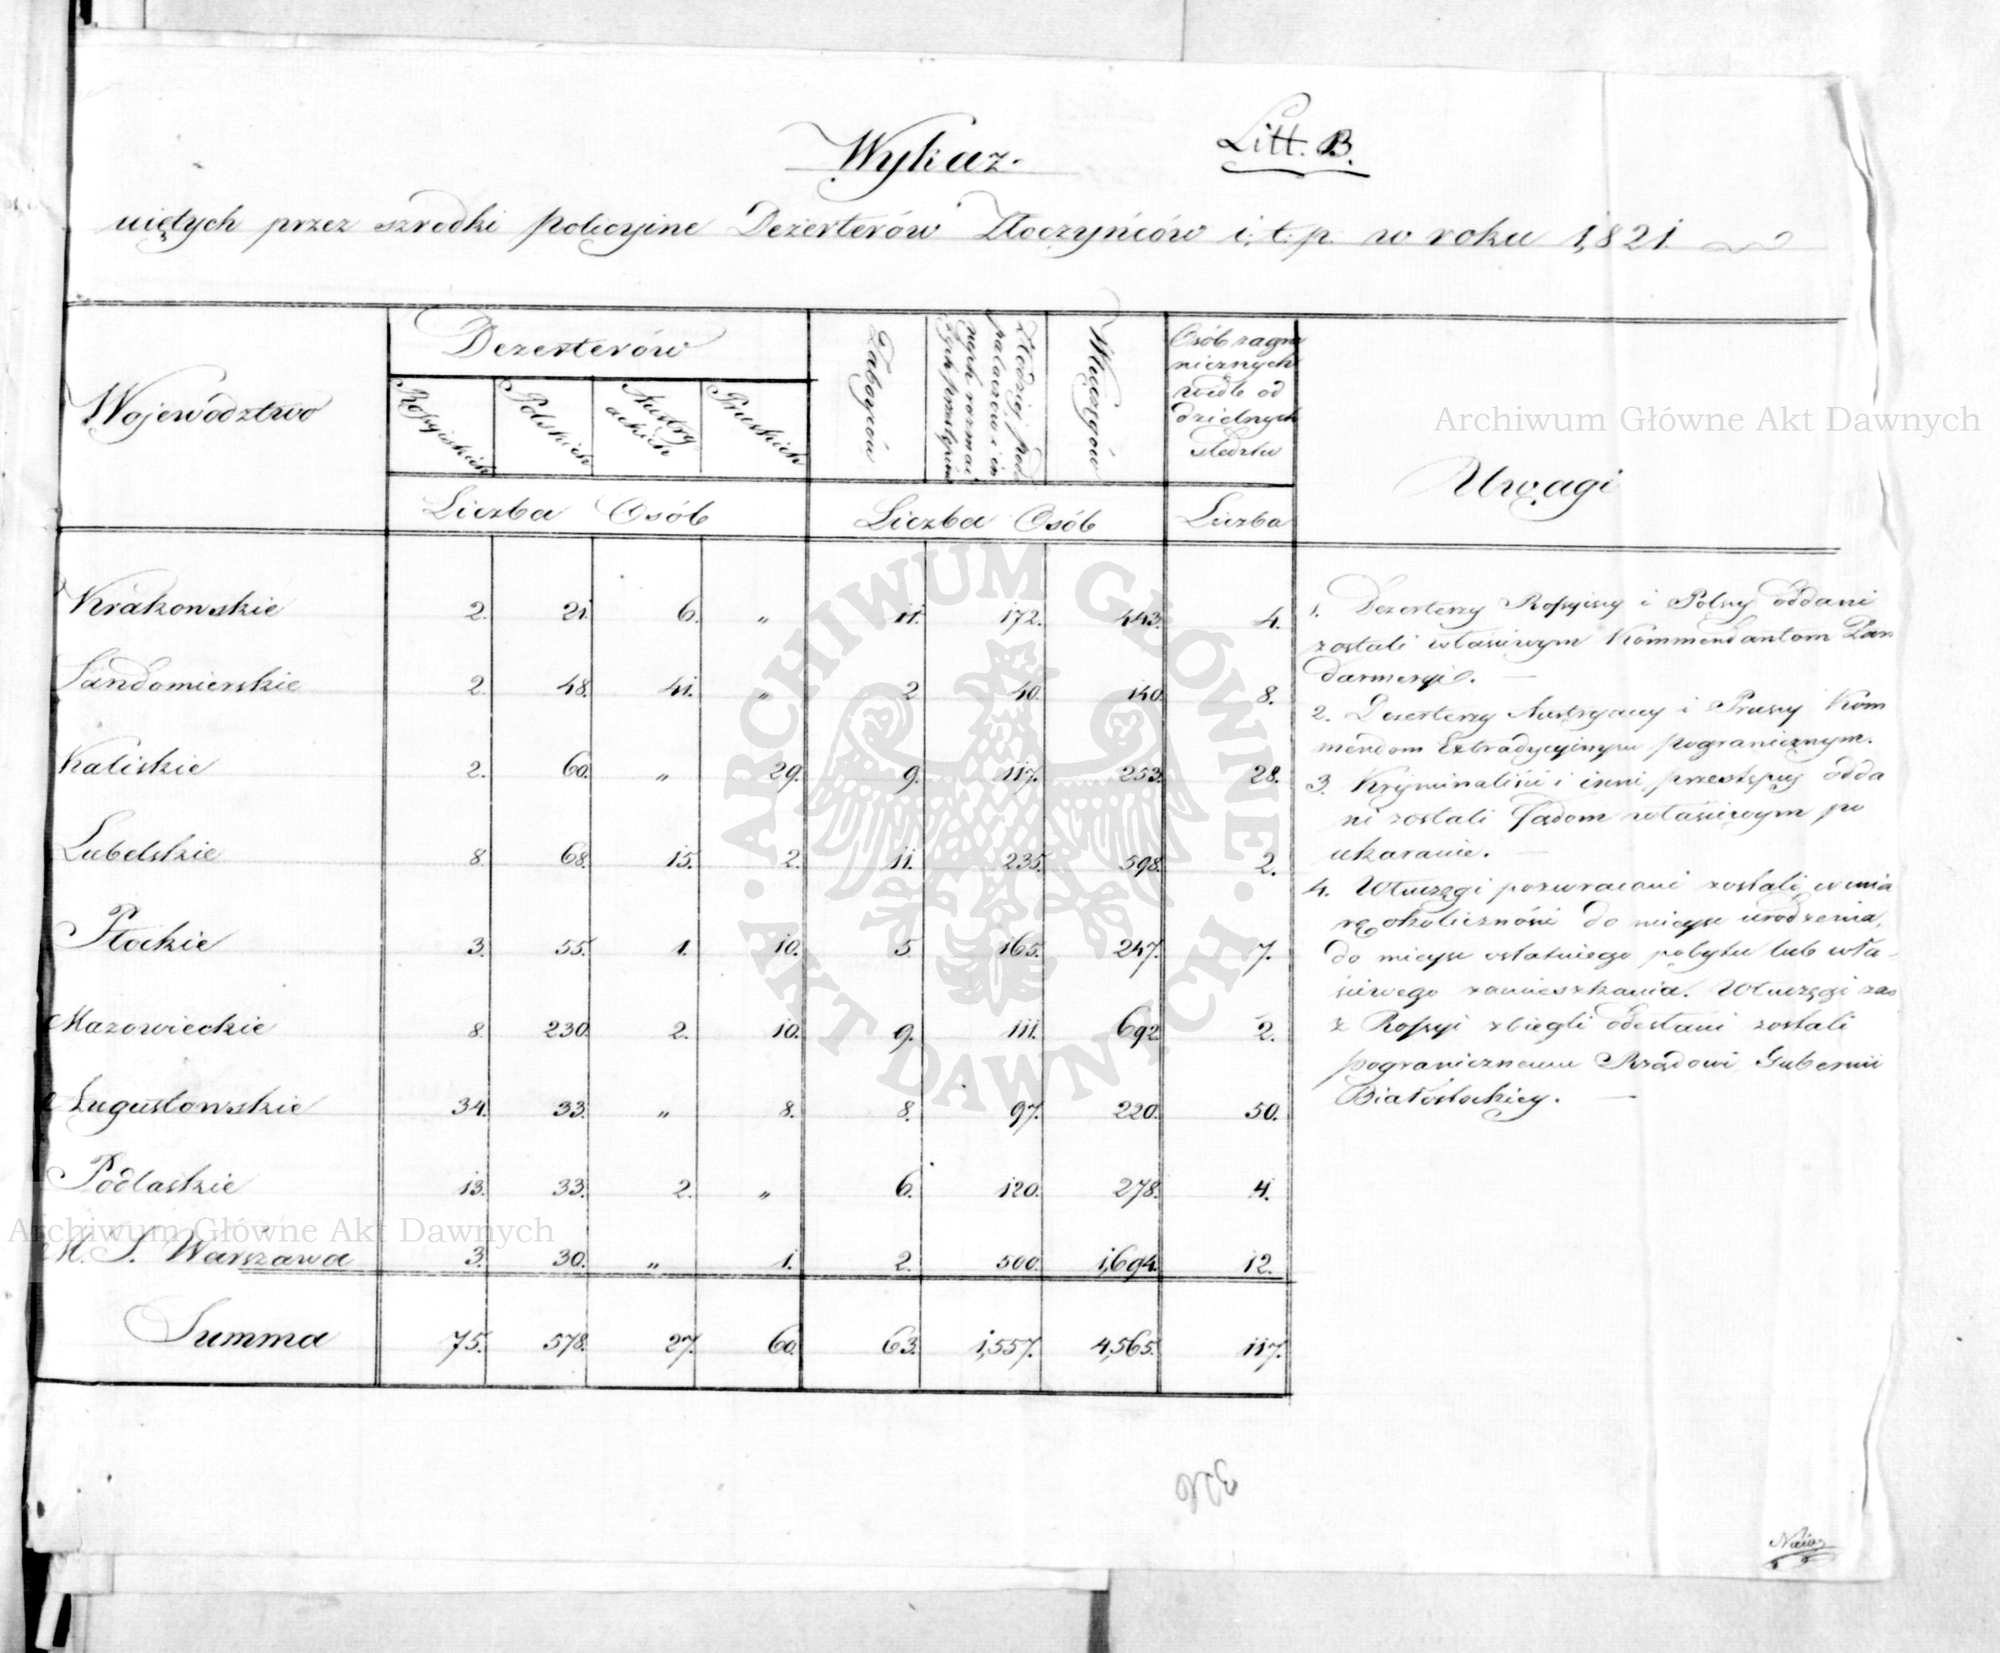 Litt. B.
Wykaz.
uiętych przez szrodki policyine Dezerterów Złoczyńców i. t. p. w roku 1,821.
Województwo
Dezerterów
Rossyiskich
Polskich
Austry
ackich
Pruskich
Zaboyców
Złodziei, pod
palaczów i in
nych rozmai
tych przestępców
Włóczęgów
Osób zagra
nicznych
wedle od
dzielnych
śledztw
Uwagi
Liczba Osób
Liczba Osób
Liczba
Krakowskie 2. 21. 6. „ 11. 172. 443. 4.
Sandomierskie 2. 48. 41. „ 2 40. 140. 8.
Kaliskie 2. 60. „ 29. 9. 117. 253. 28.
Lubelskie 8. 68. 15. 2. 11. 235. 598. 2.
Płockie 3. 55. 1. 10. 5 165. 247. 7.
Mazowieckie 8. 230. 2. 10. 9. 111. 692. 2.
Augustowskie 34. 33. „ 8. 8. 97. 220. 50.
Podlaskie 13. 33. 2. „ 6. 120. 278. 4.
M. S. Warszawa 3. 30. „ 1. 2. 500. 1,694. 12.
Summa 75. 578. 27. 60. 63. 1,557. 4,565. 117.
1. Dezerterzy Rossyiscy i Polscy oddani
zostali właściwym Kommendantom Żan
darmeryi. —
2. Dezerterzy Austryaccy i Pruscy Kom
mendom Extradycyinym pogranicznym.
3. Kryminaliści i inni przestępcy odda
ni zostali Sądom właściwym po
ukaranie. —
4. Włuczęgi pozwracani zostali w mia
rę okoliczności do mieysc urodzenia,
do mieysc ostatniego pobytu lub wła-
ściwego zamieszkania. Włuczęgi zaś
z Rossyi zbiegli odesłani zostali
pogranicznemu Rządowi Gubernii
Białostockiey. —
326
Archiwum Główne Akt Dawnych
Archiwum Główne Akt Dawnych
ARCHIWUM GŁÓWNE · AKT DAWNYCH ·